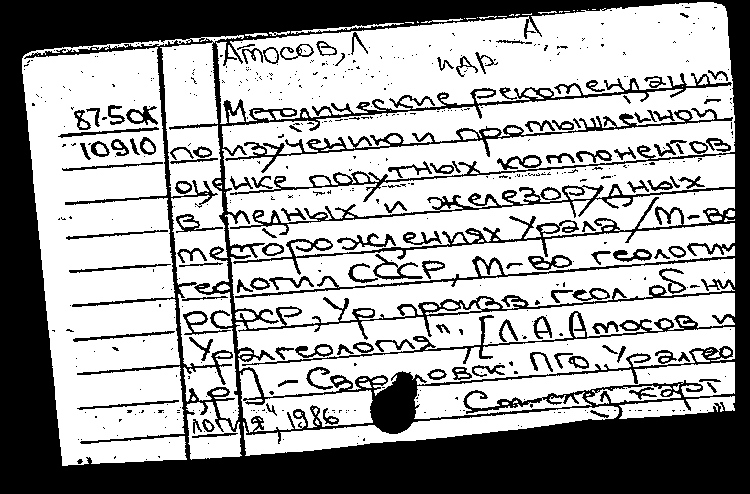 А
Амосов, Л
и др
87-5ОК
10910
Методические рекомендации
по изучению и промышленной
оценке попутных компонентов
в медных и железорудных
месторождениях Урала / М-во
геологии СССР, М-во геологии
РСФСР, Ур. произв. геол. об-ни
"Уралгеология"; [Л.А.Амосов и
др.]. - Свердловск: ПГО „Уралгео
логия", 1986
См. след. карт